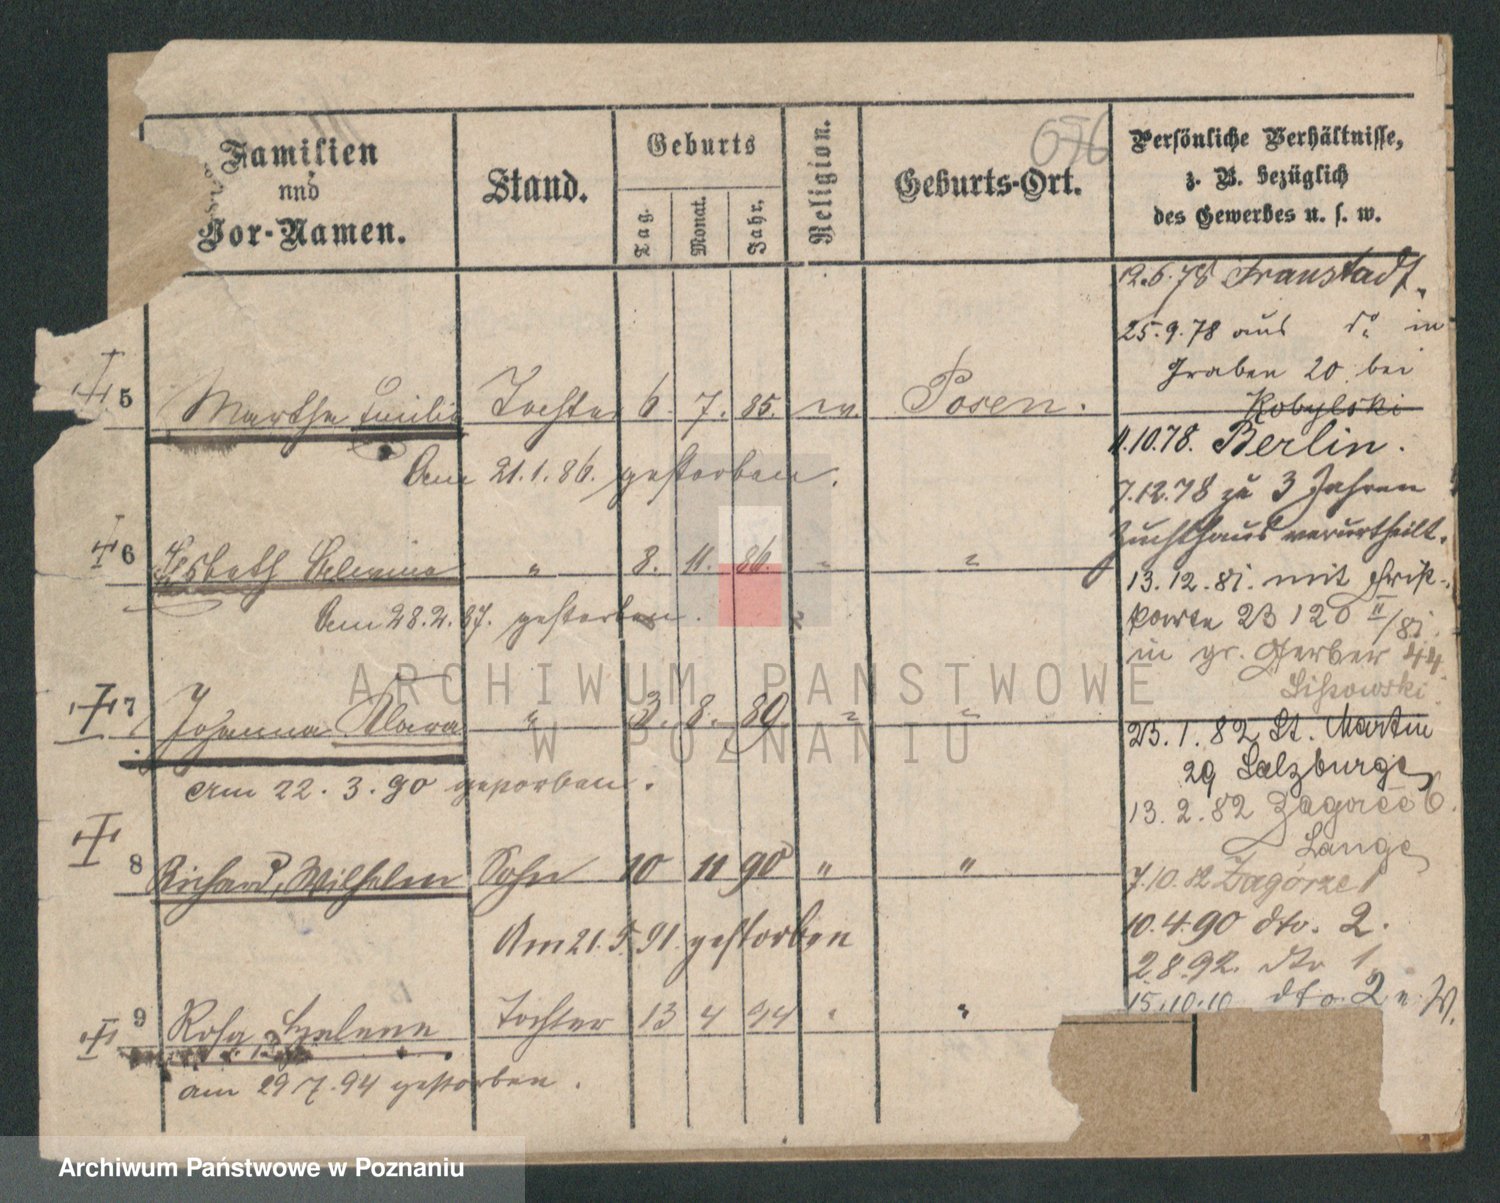 Familien
und
Vor-Namen.
Stand.
Geburts
Tag.
Monat.
Jahr.
Religion.
Geburts-Ort.
656
Persönliche Verhältnisse,
z. B. bezüglich
des Gewerbes u. s. w.
5 Martha Emilie Tochter 6. 7. 85. ev. Posen.
Am 21.1.86. gestorben.
6 Elsbeth " 8. 11. 86. " "
Am 28.2.87. gestorben.
7 Johanna Klara " 3. 8. 89. " "
Am 22.3.90 gestorben.
8 Richard, Wilhelm Sohn 10 11 90 " "
Am 21.5.91. gestorben
9 Rosa Helene Tochter 13 4 94 " "
am 29 7.94 gestorben.
12.6.78 Fraustadt,
25.9.78 aus do in
Graben 20 bei
Kobylski
11.10.78. Berlin.
7.12.78 zu 3 Jahren
Zuchthaus verurtheilt.
13.12.81. mit
karte 23 120 II/81.
in gr. Gerber 44
Lissowski
25.1.82 St. Martin
29 Salzburger
13.2.82 Zagorze 6.
Lange
7.10.82 Zagórze 1
10.4.90 dto. 2.
2.8.92. dto 1
15.10.10 dto. 2 a. W.
ARCHIWUM PAŃSTWOWE
W POZNANIU
Archiwum Państwowe w Poznaniu